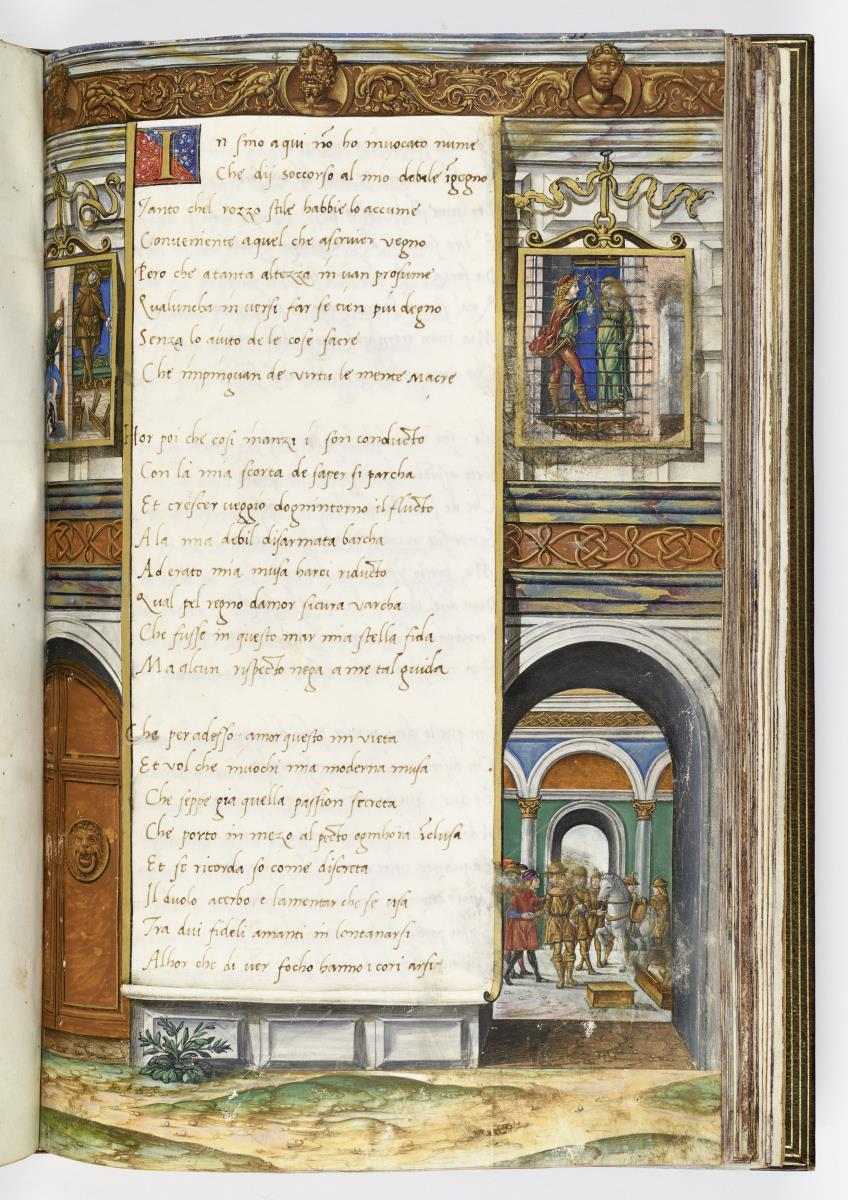 In sino a qui nō ho invocato nume
Che dij soccorso al mio debile īgegno
Tanto chel rozzo stile habbie lo accume
Conveniente aquel che ascriver vegno
Pero che atanta altezza in van prosume
Qualuncha in versi far se tien piu degno
Senza lo aiuto de le cose sacre
Che impinguan de virtu le mente Macre
Hor poi che cosi inanzi i son conducto
Con la mia scorta de saper si parcha
Et crescer veggio dognintorno il flucto
A la mia debil disarmata barcha
Ad erato mia musa harei riducto
Qual pel regno damor sicura varcha
Che fusse in questo mar mia stella fida
Ma alcun rispecto nega a me tal guida
Che per adesso amor questo mi vieta
Et vol che invochi mia moderna musa
Che seppe gia quella passion secreta
Che porto in mezo al pecto ognihora īclusa
Et se ricorda so come discreta
Il duolo acerbo e lamentar che se usa
Tra dui fideli amanti in lontanarsi
Alhor che di ver focho hanno i cori arsi